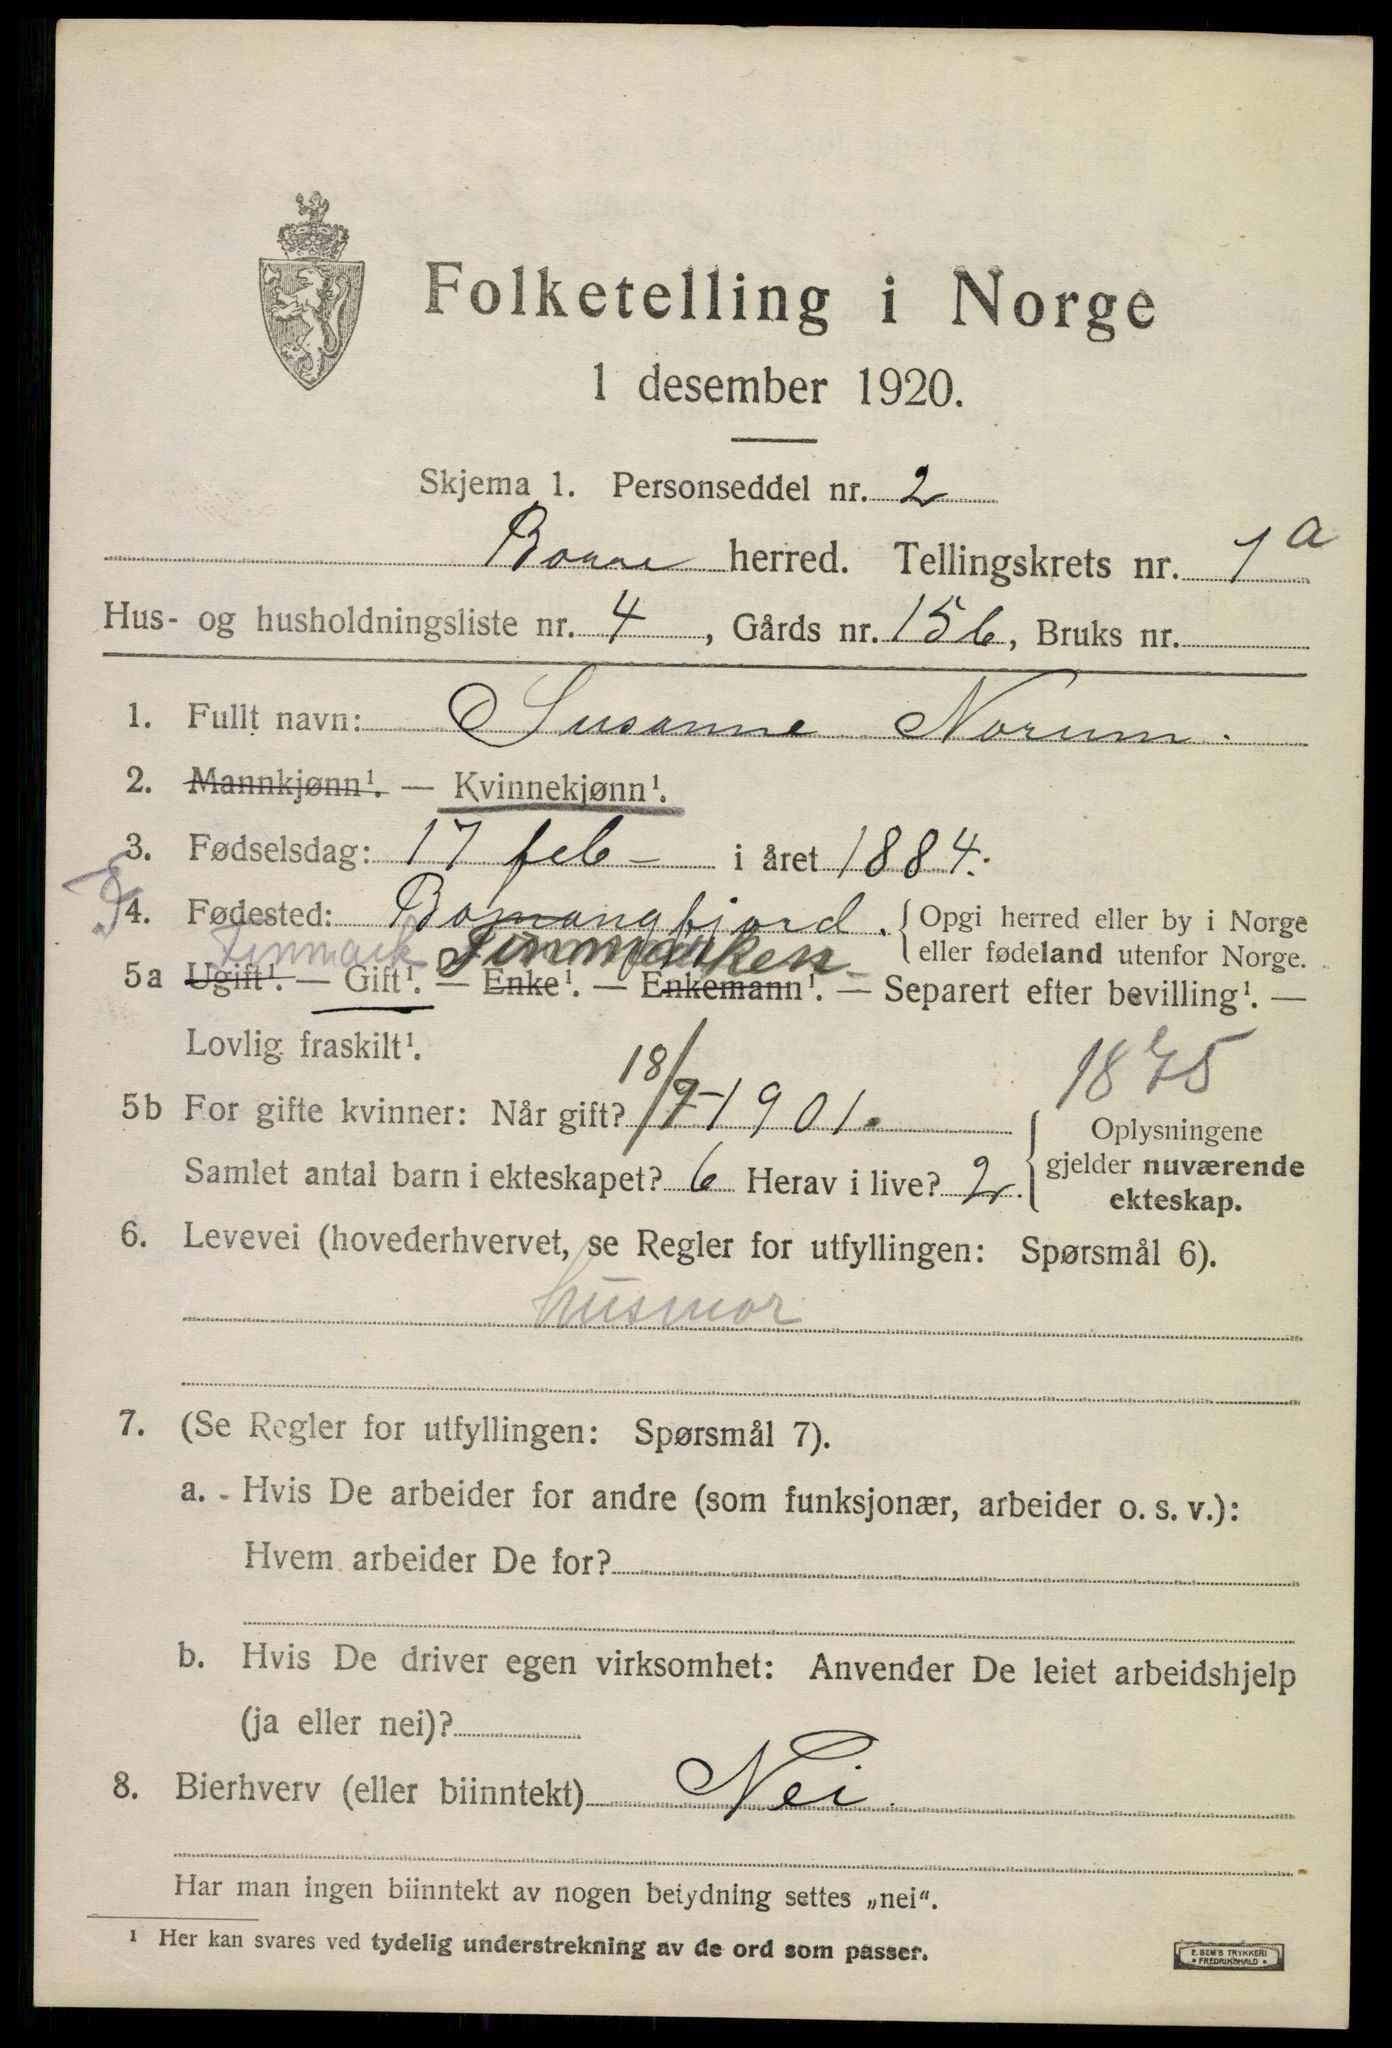 Folketelling i Norge
1 desember 1920.
Skjema 1. Personseddel nr. 2
Borre herred. Tellingskrets nr. 1a
Hus- og husholdningsliste nr. 4, Gårds nr. 156, Bruks nr.
1. Fullt navn: Susanne Norum.
2. Mannkjønn¹. — Kvinnekjønn¹.
3. Fødselsdag: 17 feb – i året 1884.
4. Fødested: { Opgi herred eller by i Norge
Finmark Finnmarken eller fødeland utenfor Norge.
5a Ugift¹. — Gift¹. — Enke¹. — Enkemann¹. — Separert efter bevilling¹. —
Lovlig fraskilt¹.
1875
5b For gifte kvinner: Når gift? 18/7-1901. { Oplysningene
gjelder nuværende
Samlet antal barn i ekteskapet? 6 Herav i live? 2. ekteskap.
6. Levevei (hovederhvervet, se Regler for utfyllingen: Spørsmål 6).
husmor
7. (Se Regler for utfyllingen: Spørsmål 7).
a. Hvis De arbeider for andre (som funksjonær, arbeider o. s. v.):
Hvem arbeider De for?
b. Hvis De driver egen virksomhet: Anvender De leiet arbeidshjelp
(ja eller nei)?
8. Bierhverv (eller biinntekt) Nei.
Har man ingen biinntekt av nogen betydning settes „nei“.
¹ Her kan svares ved tydelig understrekning av de ord som passer.
E. SEM'S TRYKKERI
• FREDRIKSHALD •